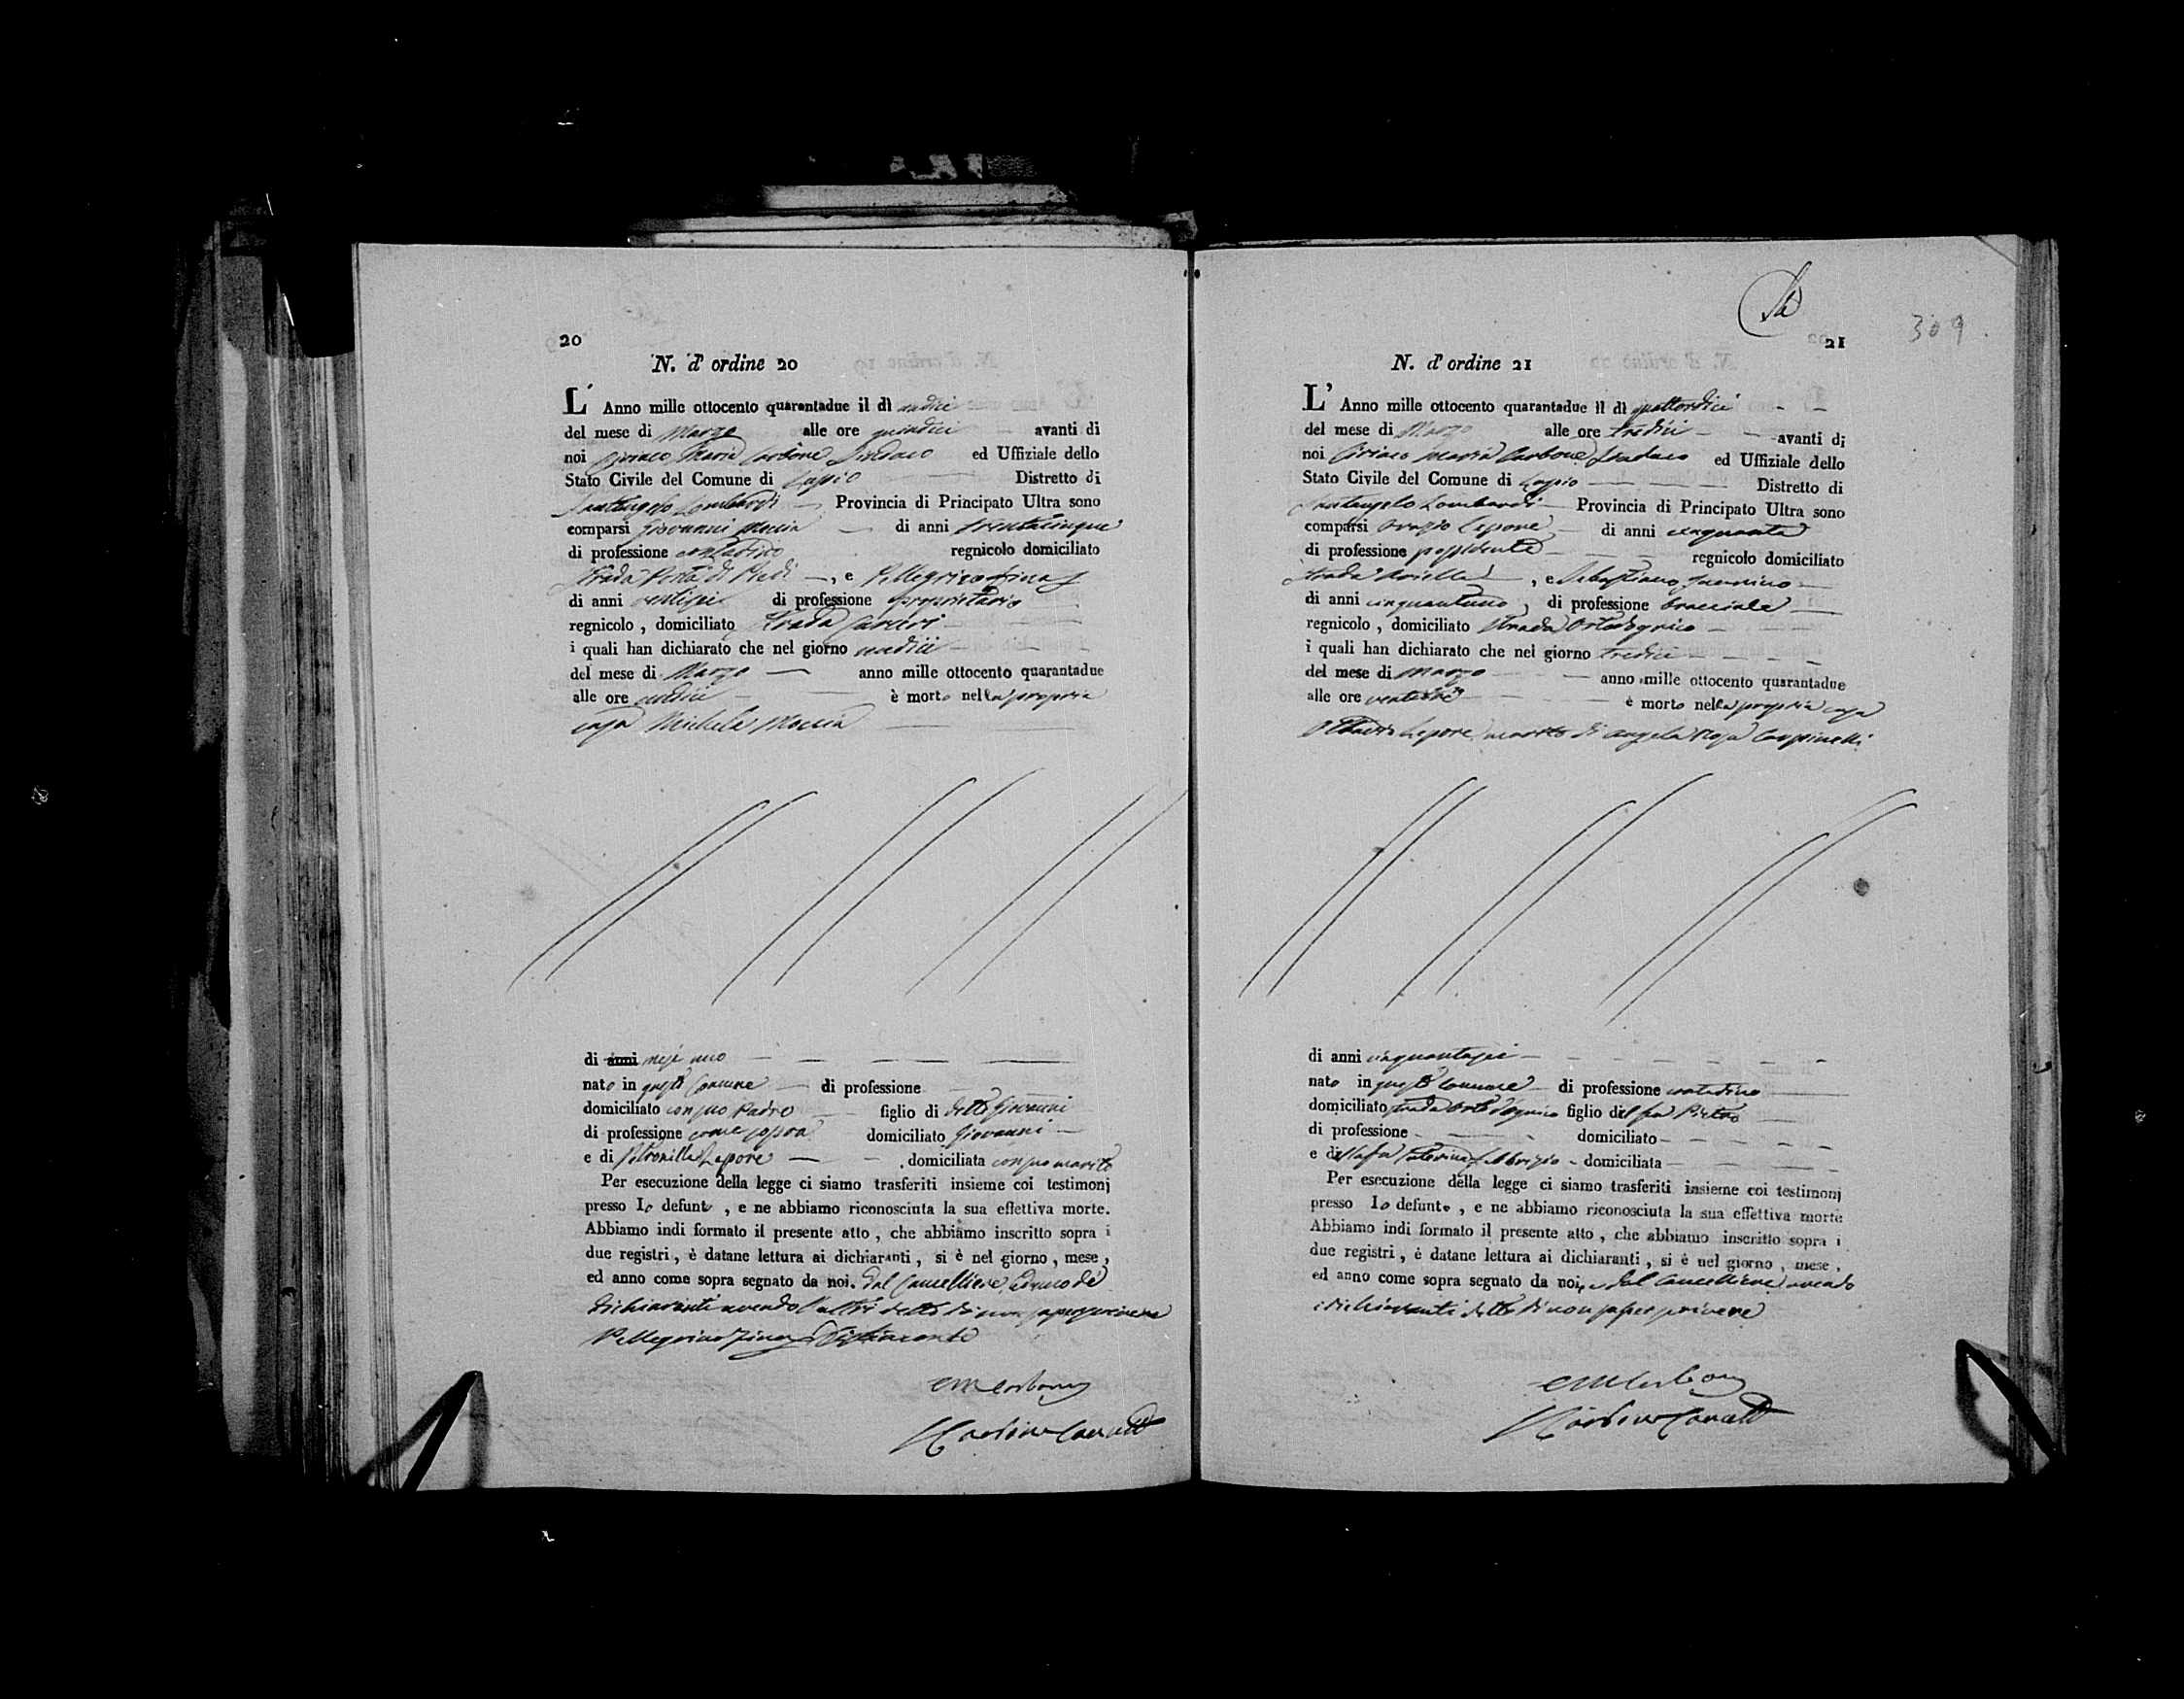 20
N. d' ordine 20
L' Anno mille ottocento quarantadue il dì undici
del mese di Marzo alle ore quindici avanti di
noi Ciriaco Maria Carbone Sindaco ed Uffiziale dello
Stato Civile del Comune di Lapio Distretto di
Santangelo Lombardi Provincia di Principato Ultra sono
comparsi Giovanni Moccia di anni trentacinque
di professione contadino regnicolo domiciliato
Strada Porta di Piedi , e Pellegrino
di anni ventisei di professione proprietario
regnicolo , domiciliato Strada
i quali han dichiarato che nel giorno undici
del mese di Marzo anno mille ottocento quarantadue
alle ore undici è morto nella propria
casa Michele Moccia
di anni mesi uno
nato in questo Comune di professione
domiciliato con suo Padre figlio di detto Giovanni
di professione come sopra domiciliato Giovanni
e di Petronilla Lepore , domiciliata con suo marito
Per esecuzione della legge ci siamo trasferiti insieme coi testimonj
presso lo defunto , e ne abbiamo riconosciuta la sua effettiva morte.
Abbiamo indi formato il presente atto , che abbiamo inscritto sopra i
due registri , è datane lettura ai dichiaranti , si è nel giorno , mese ,
ed anno come sopra segnato da noi, dal Cancelliere, e uno de'
dichiaranti avendo l'altro detto di non saper scrivere
Pellegrino
CM Carbone
309
21
N. d' ordine 21
L' Anno mille ottocento quarantadue il dì quattordici
del mese di Marzo alle ore tredici avanti di
noi Ciriaco Maria Carbone Sindaco ed Uffiziale dello
Stato Civile del Comune di Lapio Distretto di
Santangelo Lombardi Provincia di Principato Ultra sono
comparsi Orazio Lepore di anni cinquanta
di professione possidente regnicolo domiciliato
Strada , e Sebastiano
di anni cinquantuno , di professione bracciale
regnicolo , domiciliato Strada
i quali han dichiarato che nel giorno tredici
del mese di Marzo anno mille ottocento quarantadue
alle ore ventitre è morto nella propria casa
Lepore marito di Angela Rosa Carpinelli
di anni cinquantasei
nato in questo Comune di professione contadino
domiciliato strada figlio del fu Pietro
di professione domiciliato
e della fu Caterina Fabbrizio domiciliata
Per esecuzione della legge ci siamo trasferiti insieme coi testimonj
presso lo defunto , e ne abbiamo riconosciuta la sua effettiva morte
Abbiamo indi formato il presente atto , che abbiamo inscritto sopra i
due registri , è datane lettura ai dichiaranti , si è nel giorno , mese ,
ed anno come sopra segnato da noi, e dal Cancelliere avendo
i dichiaranti detto di non saper scrivere
CM Carbone